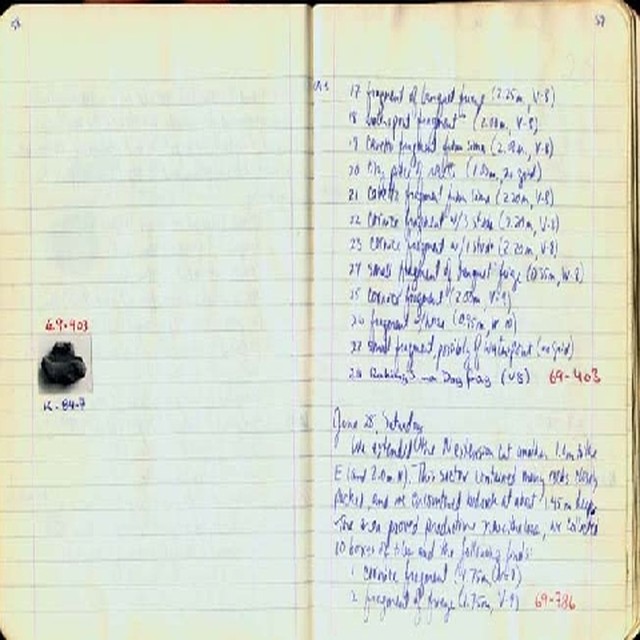 58
69-403
K-84-7
59
17 fragment of banquet frieze (2.25m, V-8)
18 waterspout fragment (2.00m, V-8)
19 Cavetto fragment from sima (2.00m, V-8)
20 tiny piece of (no grid)
21 Cavetto fragment from sima (2.20m, V-8)
22 Cornice fragment w/3 struts (2.20m, V-8)
23 cornice fragment w/1 strut (2.20m, V-8)
24 small fragment of banquet frieze (0.55m, W-8)
25 Cornice fragment (2.00m, V-9)
26 fragment (0.95m, W 10)
27 small fragment, possibly of waterspout (no grid)
28 (V-8) 69-403
June 28, Saturday
We extended the N extension cut another 1. m to the
E (and 2.0 m N). This sector contained many rocks closely
packed, and we encountered bedrock at about 1.45 m deep.
The area proved productive nonetheless, we collected
10 boxes of tiles and the following finds:
1 cornice fragment (1.75m, V-8)
2 fragment of frieze (1.75m, V-9) 69-786